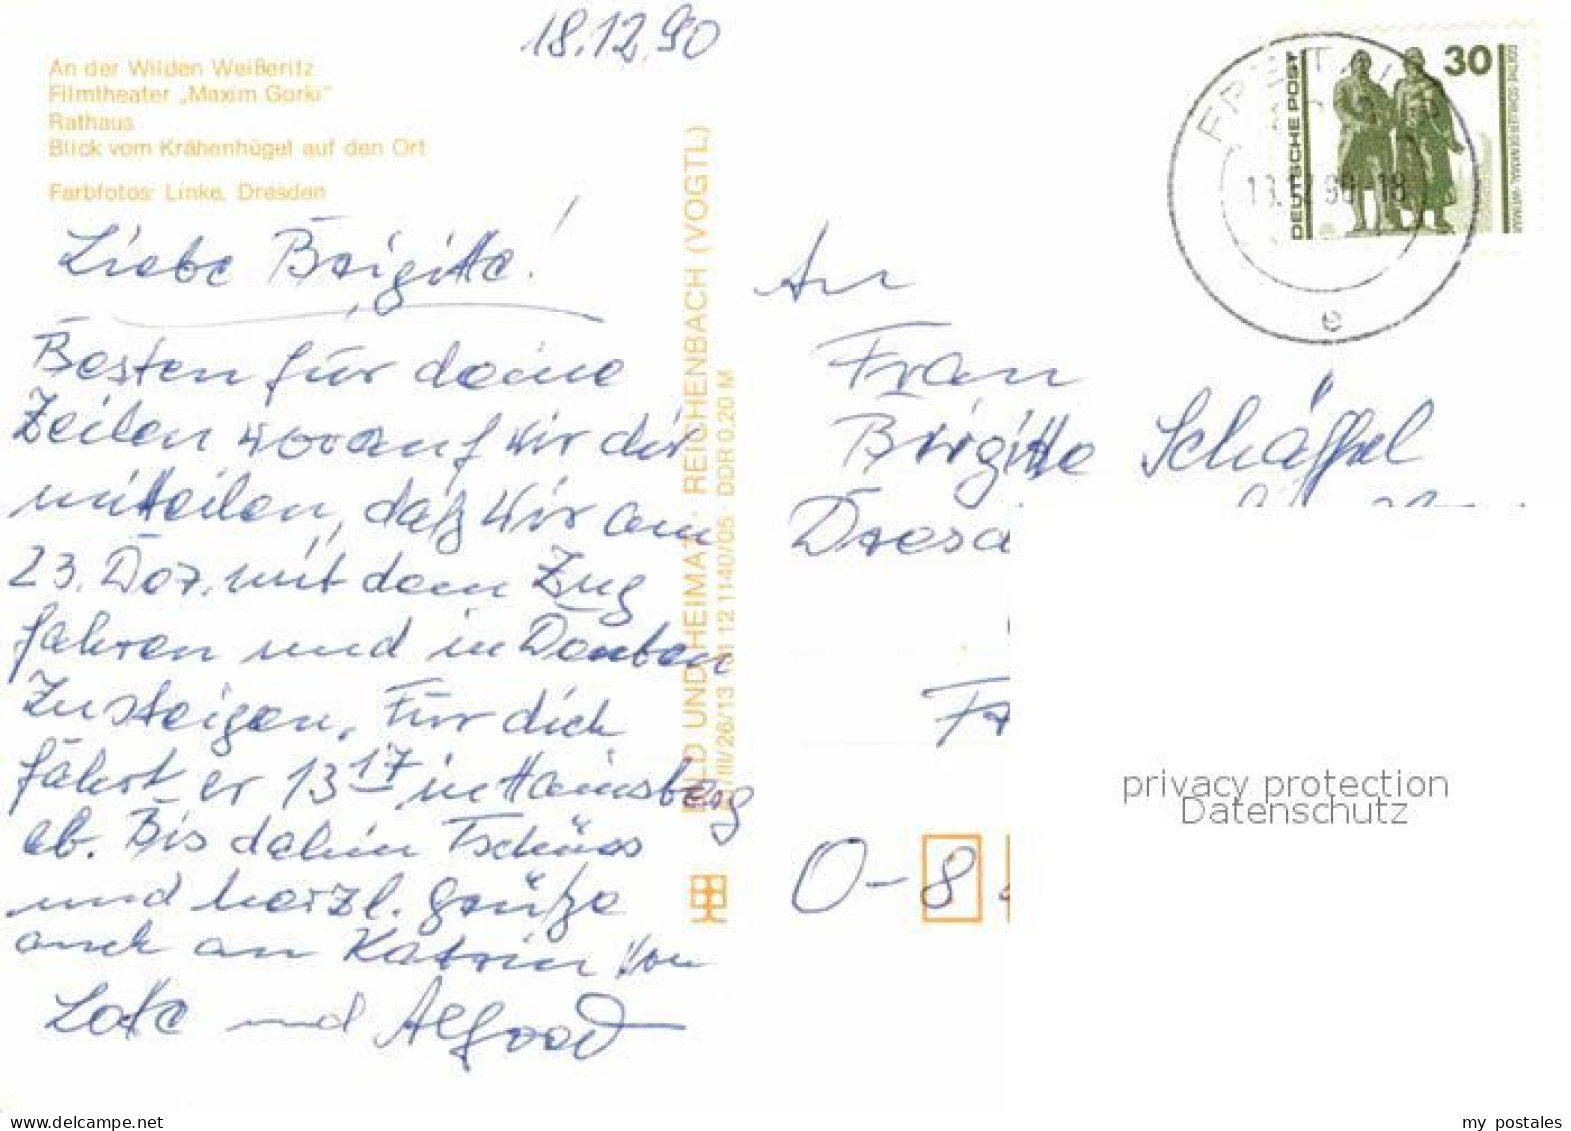 18.12.90
An der Wilden Weißeritz
Filmtheater „Maxim Gorki"
Rathaus
Blick vom Krähenhügel auf den Ort
Farbfotos: Linke, Dresden
Liebe Brigitte!
Besten für deine
Zeilen worauf wir dir
mitteilen, daß wir am
23. Dez. mit dem Zug
fahren und in Deuben
Zusteigen. Für dich
fährt er 13 17 in Hainsberg
ab. Bis dahin Tschüss
und herzl. Grüße
auch an Katrin von
Lotte und
BILD UND HEIMAT REICHENBACH (VOGTL)
III/26/13 01 12 1140/05 DDR 0,20 M
DEUTSCHE POST
30
GOETHE-SCHILLER-DENKMAL · WEIMAR
-18
e
An
Frau
Brigitte Schäffel
Dresd
O-8
privacy protection
Datenschutz
my postales